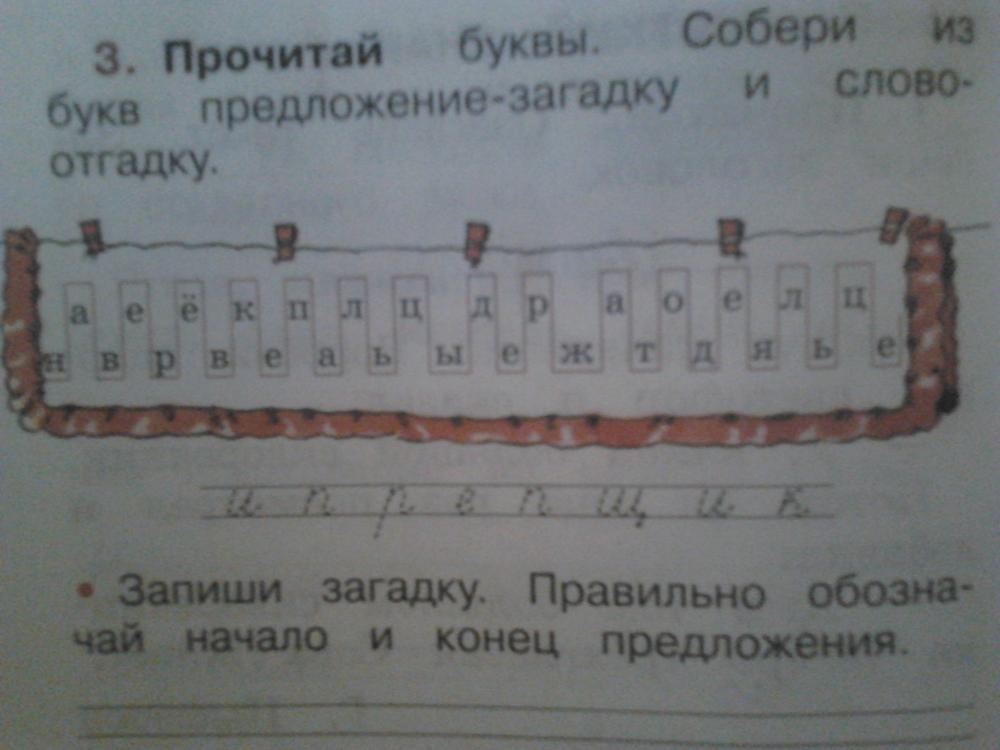 3. Прочитай буквы. Собери из
букв предложение-загадку и слово-
отгадку.
а е ё к п л ц д р а о е л ц
н в р в е а ь ы е ж т д я ь е
и п р е п щ и к
• Запиши загадку. Правильно обозна-
чай начало и конец предложения.